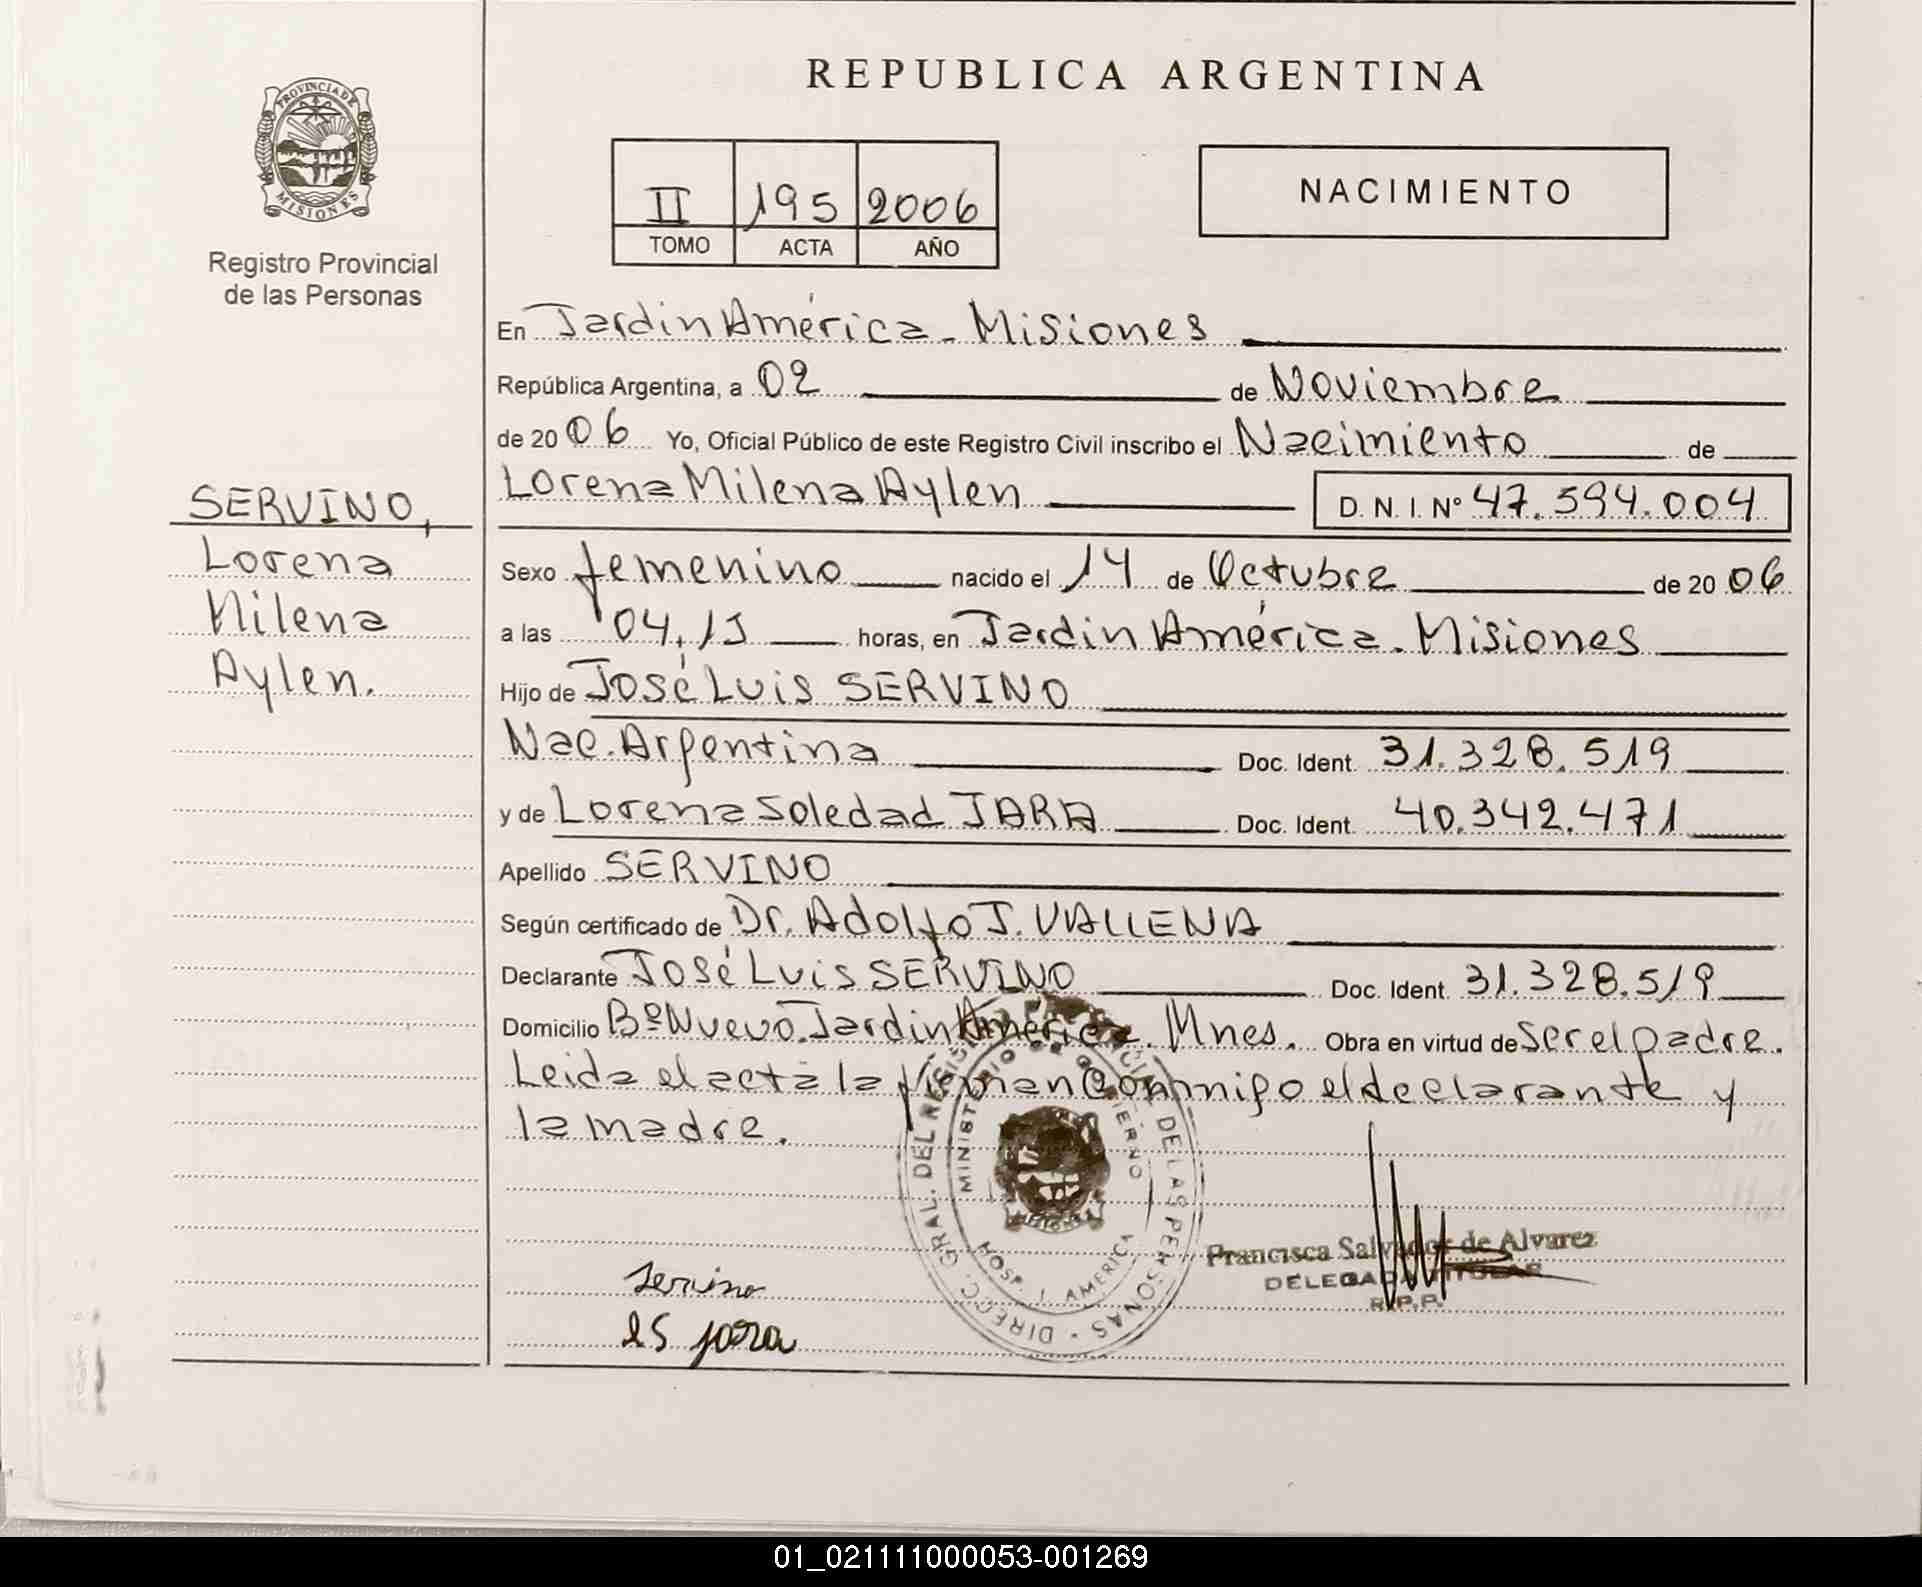 REPUBLICA ARGENTINA
PROVINCIA DE
MISIONES
Registro Provincial
de las Personas
II 195 2006
TOMO ACTA AÑO
NACIMIENTO
SERVINO,
Lorena
Milena
Aylen.
En Jardin América - Misiones
República Argentina, a 02 de Noviembre
de 2006 Yo, Oficial Público de este Registro Civil inscribo el Nacimiento de
Lorena Milena Aylen D. N. I. Nº 47.594.004
Sexo femenino nacido el 14 de Octubre de 2006
a las 04,15 horas, en Jardin América. Misiones
Hijo de José Luis SERVINO
Nac. Argentina Doc. Ident. 31.328.519
y de Lorena Soledad JARA Doc. Ident. 40.342.471
Apellido SERVINO
Según certificado de Dr. Adolfo J. VALLENA
Declarante José Luis SERVINO Doc. Ident. 31.328.519
Domicilio Bº Nuevo. Jardin América. Mnes. Obra en virtud de ser el padre.
Leida el acta la firman conmigo el declarante y
la madre.
DIRECC. GRAL. DEL DE LAS PERSONAS
MINISTERIO DE GOBIERNO
HOSP. J. AMERICA
Francisca Salvador de Alvarez
DELEGADA TITULAR
R.P.P.
Servino
LS jara
01_021111000053-001269